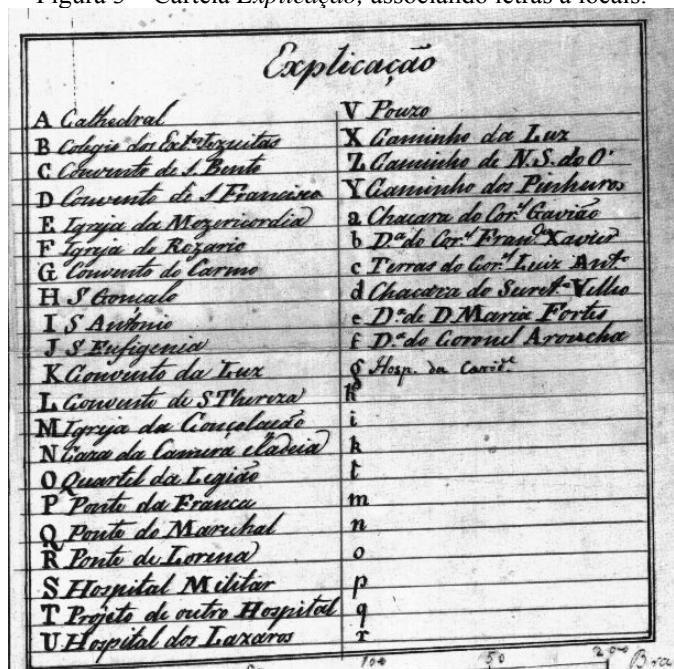 Figura 3 – Cartela Explicação, associando letras a locais.
Explicação
A Cathedral
B Colegio dos Ext.os Jezuitas
C Convento de S. Bento
D Convento de S Francisco
E Igreja da Mezericordia
F Igreja do Rozario
G Convento do Carmo
H S Gonçalo
I S Antonio
J S Eufigenia
K Convento da Luz
L Convento de S Thereza
M Igreja da Conçolação
N Caza da Camera e Cadeia
O Quartel da Legião
P Ponte da Franca
Q Ponte do Marichal
R Ponte de Lorena
S Hospital Militar
T Projeto de outro Hospital
U Hospital dos Lazaros
V Pouzo
X Caminho da Luz
Z Caminho de N. S. do O'
Y Caminho dos Pinheiros
a Chacara do Cor.el Gavião
b D.a do Cor.el Fran.co Xavier
c Terras do Cor.el Luiz Ant.o
d Chacara do Velho
e D.a de D. Maria Fortes
f D.a do Coronel Aroucha
g Hosp. da Carid.e
h
i
k
l
m
n
o
p
q
r
100 150 200 Bra